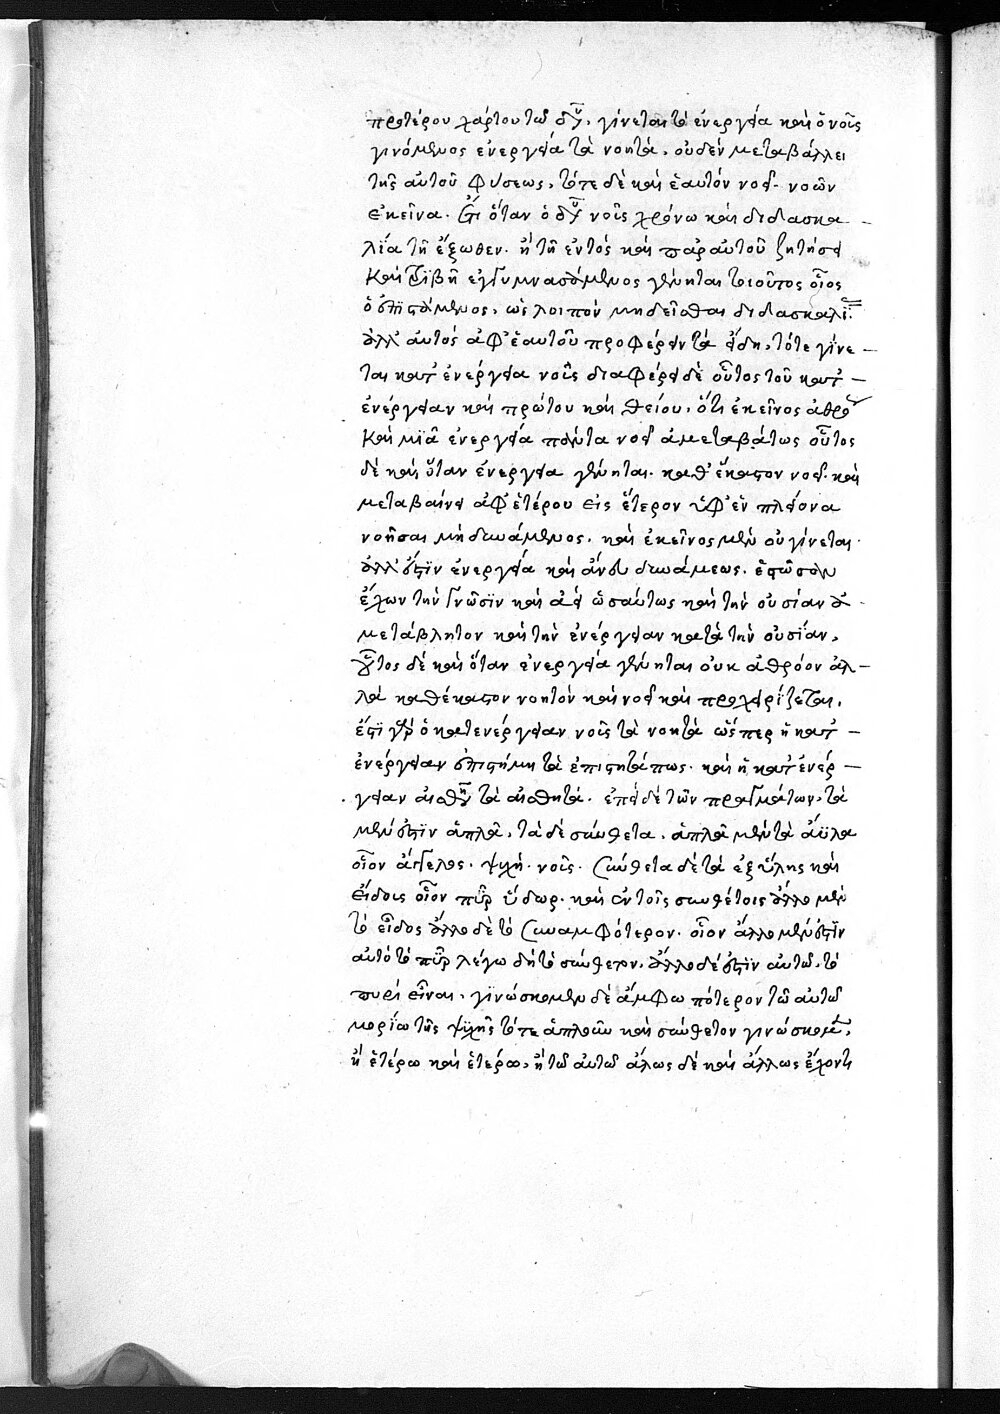 προτέρου χάρτου τῶ δυ, γίνεται τὸ ἐνεργεία καὶ ὁ νοῦς
γινόμενος ἐνεργεία τὰ νοητὰ, οὐδὲν μεταβάλλει
τῆς αὑτοῦ φύσεως, τότε δὲ καὶ ἑαυτὸν νοεῖ· νοῶν
ἐκεῖνα. Ὅτι ὅταν ὁ δυ νοῦς χρόνω καὶ διδασκα
λία τῆ ἔξωθεν. ἢ τῆ ἐντὸς καὶ παρ' αὑτοῦ ζητήσει
καὶ τριβῆ ἐγγυμνασάμενος γένηται τοιοῦτος οἷος
ὁ ἐπιστάμενος, ὡς λοιπὸν μὴ δεῖσθαι διδασκαλί
ἀλλ' αὐτὸς ἀφ' ἑαυτοῦ προφέρειν τὰ εἴδη, τότε γίνε
ται κατ' ἐνέργεια νοῦς διαφέρει δὲ οὗτος τοῦ κατ'
ἐνέργειαν καὶ πρώτου καὶ θείου, ὅτι ἐκεῖνος ἀθρό
καὶ μιᾶ ἐνεργεία πάντα νοεῖ ἀμεταβάτως οὗτος
δὲ καὶ ὅταν ἐνέργεια γένηται. καθ' ἕκαστον νοεῖ. καὶ
μεταβαίνει ἀφ' ἑτέρου εἰς ἕτερον ὑφ' ἓν πλείονα
νοῆσαι μὴ δυνάμενος. καὶ ἐκεῖνος μὲν οὐ γίνεται
ἀλλ' ἐστὶν ἐνεργεία καὶ ἄνευ δυνάμεως. ἑστῶσαν
ἔχων τὴν γνῶσιν καὶ ἀεὶ ὡσαύτως καὶ τὴν οὐσίαν ἀ
μετάβλητον καὶ τὴν ἐνέργειαν κατὰ τὴν οὐσίαν,
οὗτος δὲ καὶ ὅταν ἐνεργεία γένηται οὐκ ἀθρόον ἀλ
λὰ καθέκαστον νοητὸν καὶ νοεῖ καὶ προχειρίζεται,
ἔστι γὰρ ὁ κατενέργειαν νοῦς τὰ νοητὰ ὥσπερ ἡ κατ'
ἐνέργειαν ἐπιστήμη τὰ ἐπιστητάπως. καὶ ἡ κατ' ἐνέρ
γειαν αἴσθη τὰ αἰσθητά. ἐπεὶ δὲ τῶν πραγμάτων, τὰ
μέν ἐστιν ἁπλᾶ, τὰ δὲ σύνθετα, ἁπλᾶ μὲν τὰ ἄϋλα
οἷον ἄγγελος. ψυχή. νοῦς. σύνθετα δὲ τὰ ἐξ ὕλης καὶ
εἴδους οἷον πῦρ ὕδωρ. καὶ ἐν τοῖς συνθέτοις ἄλλο μὲν
τὸ εἶδος ἄλλο δὲ τὸ συναμφότερον. οἷον ἄλλο μέν ἐστιν
αὐτὸ τὸ πῦρ λέγω δὴ τὸ σύνθετον, ἄλλο δέ ἐστιν αὐτῶ, τὸ
πυρὶ εἶναι, γινώσκομεν δὲ ἄμφω πότερον τῶ αὐτῶ
μορίω τῆς ψυχῆς τό τε ἁπλοῦν καὶ σύνθετον γινώσκομε,
ἢ ἑτέρω καὶ ἑτέρω, ἢ τῶ αὐτῶ ἄλως δὲ καὶ ἄλλως ἔχοντι